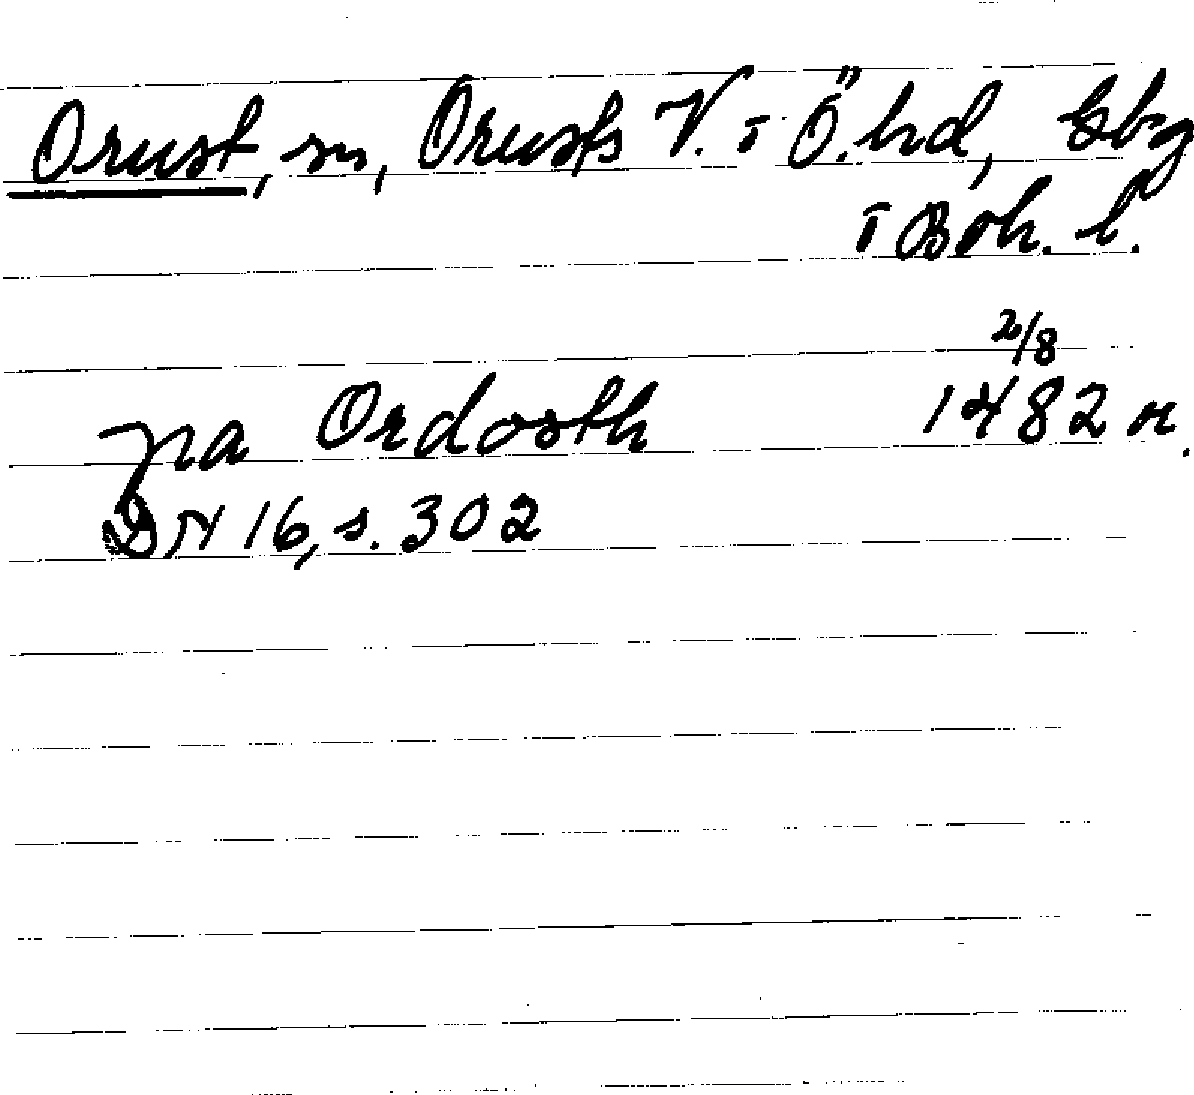 Orust, sn, Orusts V. o Ö. hd, Gbg
o Boh. l.
2/8
pa Ordosth 1482 or.
DN 16, s. 302